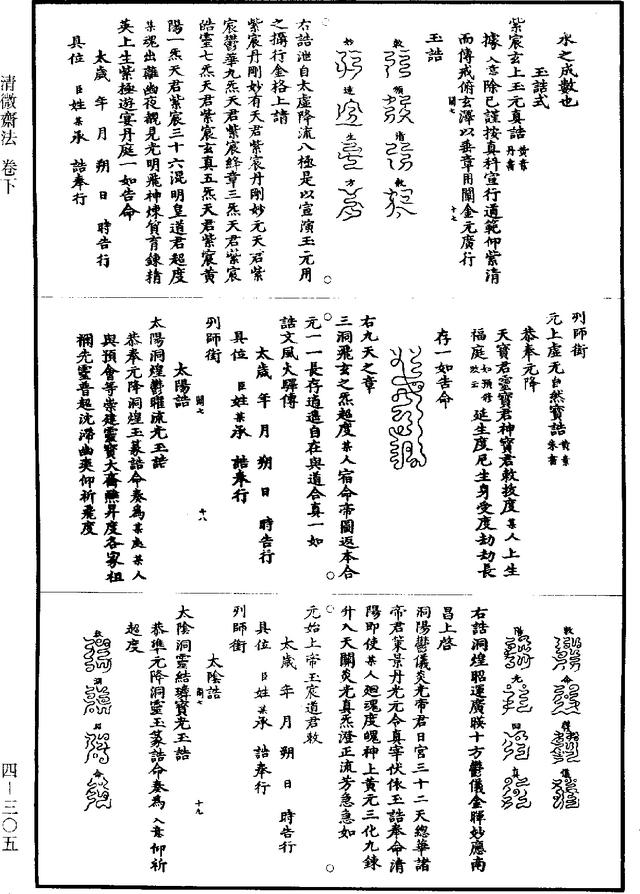 清微齋法 卷下
四—三〇五
水之成數也
玉誥式
紫宸玄上玉元真誥 黃素丹書
據 入意 除已謹按真科宣行道範仰紫清
而傳戒俯玄澤以垂章用闡金元廣行
闕七 十七
玉誥
敕 頒 清 敕
妙 達 生 方
右誥泄自太虛降流八極是以宣演玉元用
之攝行金格上請
紫宸丹剛妙有天君紫宸丹剛妙元天君紫
宸鬱華九炁天君紫宸絳章三炁天君紫宸
皓靈七炁天君紫宸玄真五炁天君紫宸黃
陽一炁天君紫宸三十六混明皇道君超度
某魂出離幽夜觀見光明飛神煉質育鍊精
英上生紫極遊宴丹庭一如告命
太歲 年 月 朔 日 時告行
具位 臣姓某承 誥奉行
列師銜
元上虛无自然寶誥 黃素朱書
恭奉元降
天寶君靈寶君神寶君敕拔度某人上生
福庭 如預修改云 延生度厄生身受度劫劫長
存一如告命
右九天之章
三洞飛玄之炁超度某人宿命帝圖返本合
元一一長存逍遙自在與道合真一如
誥文風火驛傳
太歲 年 月 朔 日 時告行
具位 臣姓某承 誥奉行
列師銜
太陽誥
闕七 十八
太陽洞煌鬱曜流光玉誥
恭奉元降洞煌玉篆誥命奏為某處某人
與預會等崇建靈寶大齋無昇度各家祖
禰先靈普超沈滯幽爽仰祈飛度
敕 命 儀
陽 光 回 真
右誥洞煌昭運廣暎十方鬱儀金暉妙應南
昌上啓
洞陽鬱儀炎光帝君日宮三十二天總華諸
帝君策景丹光元令真宰伏依玉誥奉命清
陽即使某人迴魂度魄神上黃元三化九鍊
升入天關炎光真炁澄正流芳急急如
元始上帝玉宸道君敕
太歲 年 月 朔 日 時告行
具位 臣姓某承 誥奉行
列師銜
太陰誥
闕七 十九
太陰洞靈結璘寶光玉誥
恭準元降洞靈玉篆誥命奏為 入意 仰祈
超度
敕 洞 昭 命